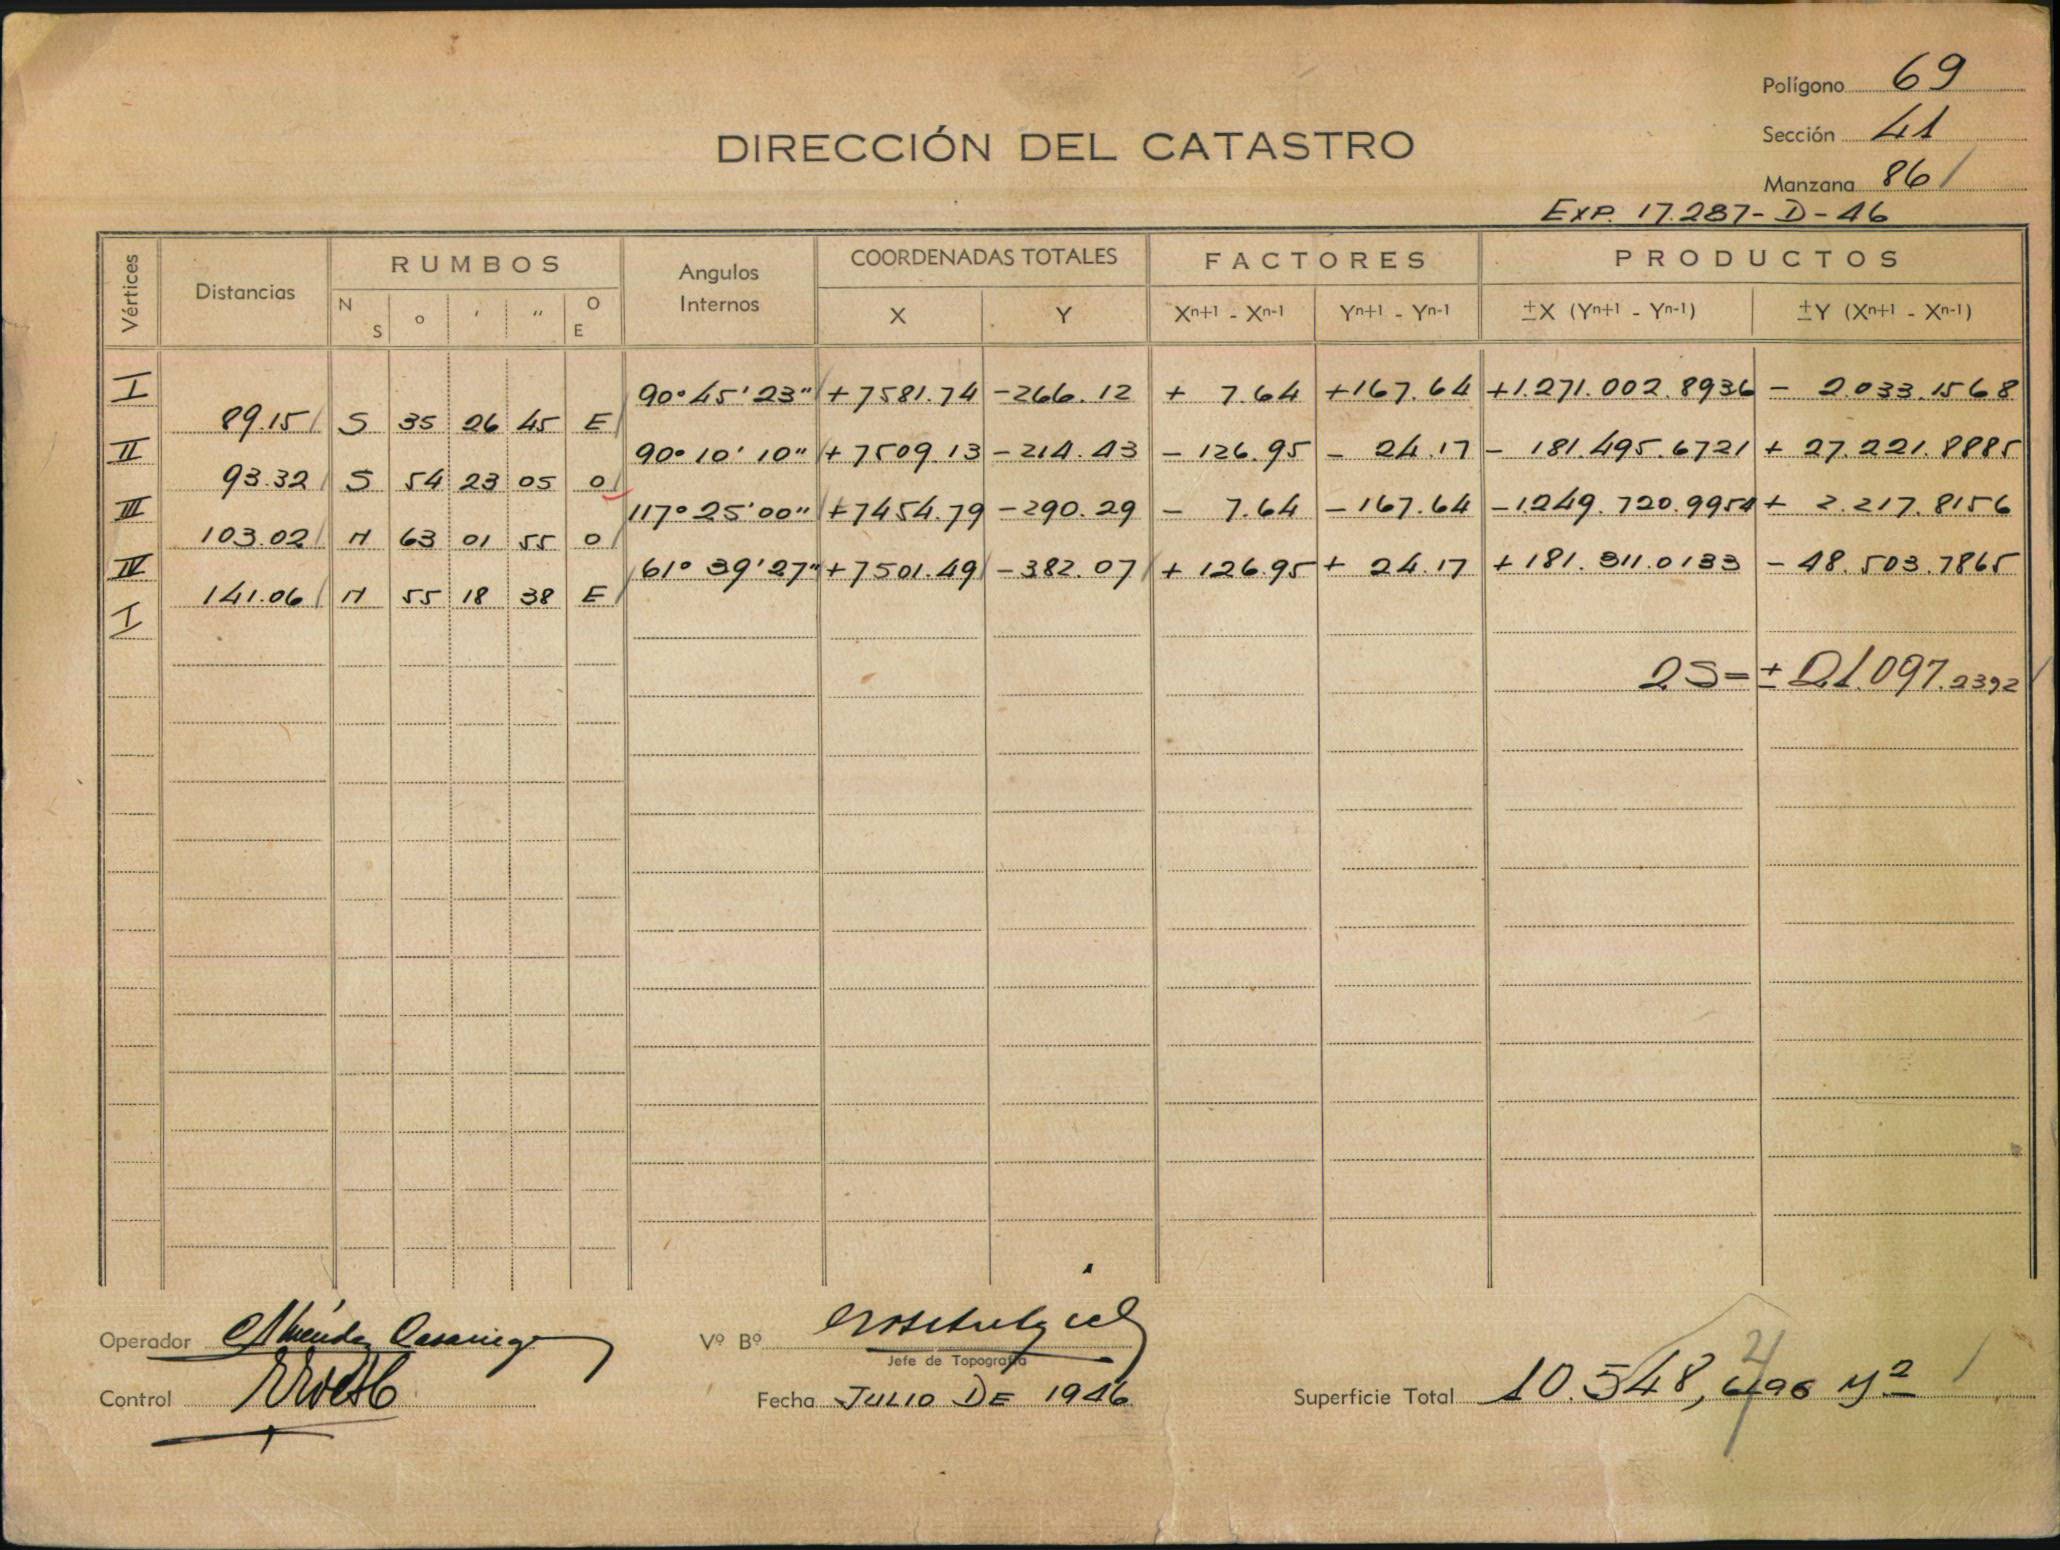 Polígono 69
Sección 41
Manzana 86
DIRECCIÓN DEL CATASTRO
EXP. 17.287-D-46
Vértices Distancias RUMBOS Angulos Internos COORDENADAS TOTALES FACTORES PRODUCTOS
N S o ' " O E X Y Xn+1 - Xn-1 Yn+1 - Yn-1 ±X (Yn+1 - Yn-1) ±Y (Xn+1 - Xn-1)
I 90° 45' 23" +7581.74 -266.12 + 7.64 +167.64 +1.271.002.8936 - 2.033.1568
89.15 S 35 26 45 E
II 90° 10' 10" +7509.13 -214.43 - 126.95 - 24.17 - 181.495.6721 + 27.221.8885
93.32 S 54 23 05 O
III 117° 25' 00" +7454.79 -290.29 - 7.64 -167.64 -1249.720.9956 + 2.217.8156
103.02 N 63 01 55 O
IV 61° 39' 27" +7501.49 -382.07 + 126.95 + 24.17 +181.311.0133 - 48.503.7865
141.06 N 55 18 38 E
I
2S=± 21.097.2392
Operador
Vº Bº
Jefe de Topografía
Control
Fecha JULIO DE 1946
Superficie Total 10.548, M²